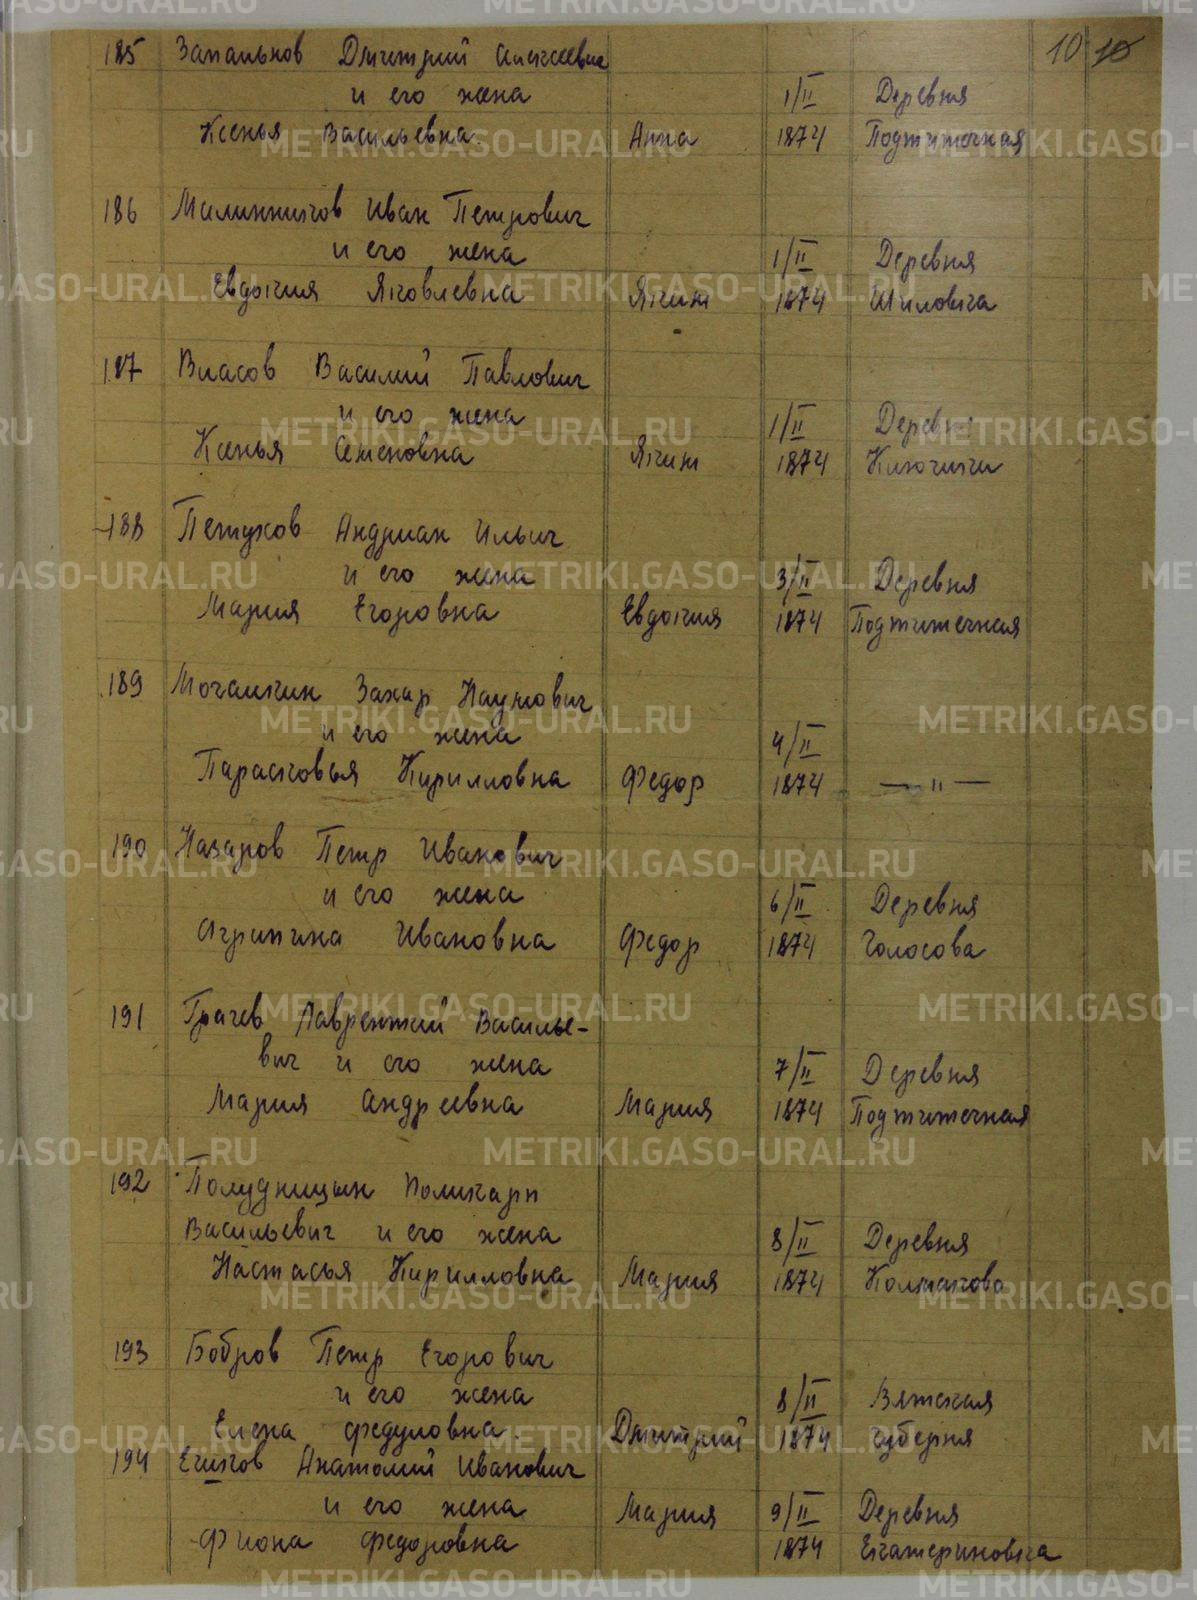 10 10
185 Запальнов Дмитрий Алексеевич
и его жена 1/II Деревня
Ксенья Васильевна Анна 1874 Подтиточная
186 Малинников Иван Петрович
и его жена 1/II Деревня
Евдокия Яковлевна Яким 1874 Шиловка
187 Власов Василий Павлович
и его жена 1/II Деревня
Ксенья Семеновна Яким 1874 Ключики
188 Петухов Андриан Ильич
и его жена 3/II Деревня
Мария Егоровна Евдокия 1874
189 Мочалкин Захар Наумович
и его жена 4/II
Парасковья Кирилловна Федор 1874 — " —
190 Назаров Петр Иванович
и его жена 6/II Деревня
Агрипина Ивановна Федор 1874 Голосова
191 Грачев Лаврентий Василье-
вич и его жена 7/II Деревня
Мария Андреевна Мария 1874
192 Полудницын Поликарп
Васильевич и его жена 8/II Деревня
Настасья Кирилловна Мария 1874 Колтаково
193 Бобров Петр Егорович
и его жена 8/II Вятская
Елена Федуловна Дмитрий 1874 губерня
194 Анатолий Иванович
и его жена Мария 9/II Деревня
Фиона Федоровна 1874 Екатериновка
METRIKI.GASO-URAL.RU